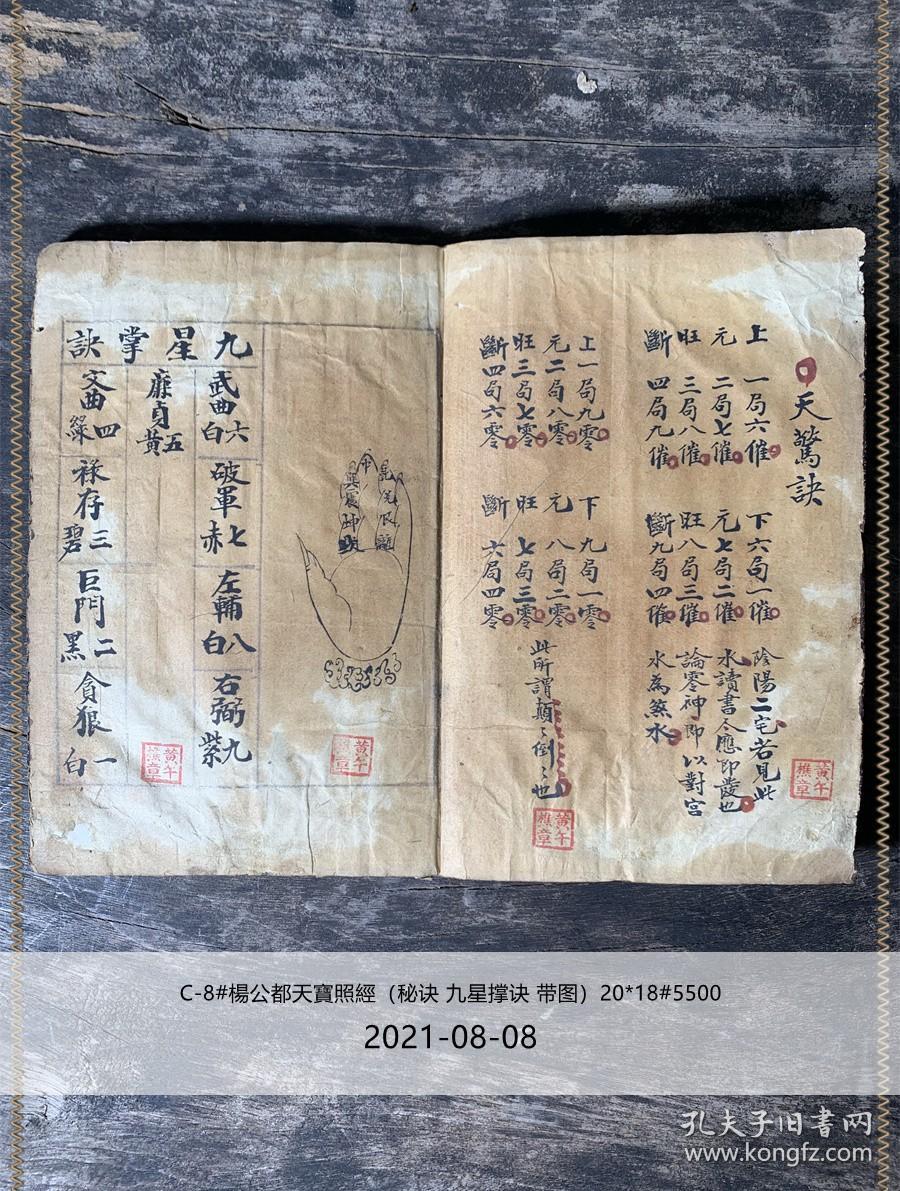 天驚訣
上 一局六催 下六局一催 陰陽二宅若見此
元 二局七催 元七局二催 水讀書人應即發也
旺 三局八催 旺八局三催 論零神即以對宮
斷 四局九催 斷九局四催 水為煞水
上一局九零 下九局一零
元二局八零 元八局二零
旺三局七零 旺七局三零
斷四局六零 斷六局四零
此所謂顛々倒々也
中
乾兌艮離
巽震坤坎
九星掌訣
武曲六白
破軍七赤
左輔八白
右弼九紫
廉貞五黃
文曲四綠
祿存三碧
巨門二黑
貪狼一白
C-8#楊公都天寶照經（秘诀 九星撑诀 带图）20*18#5500
2021-08-08
孔夫子旧书网
www.kongfz.com